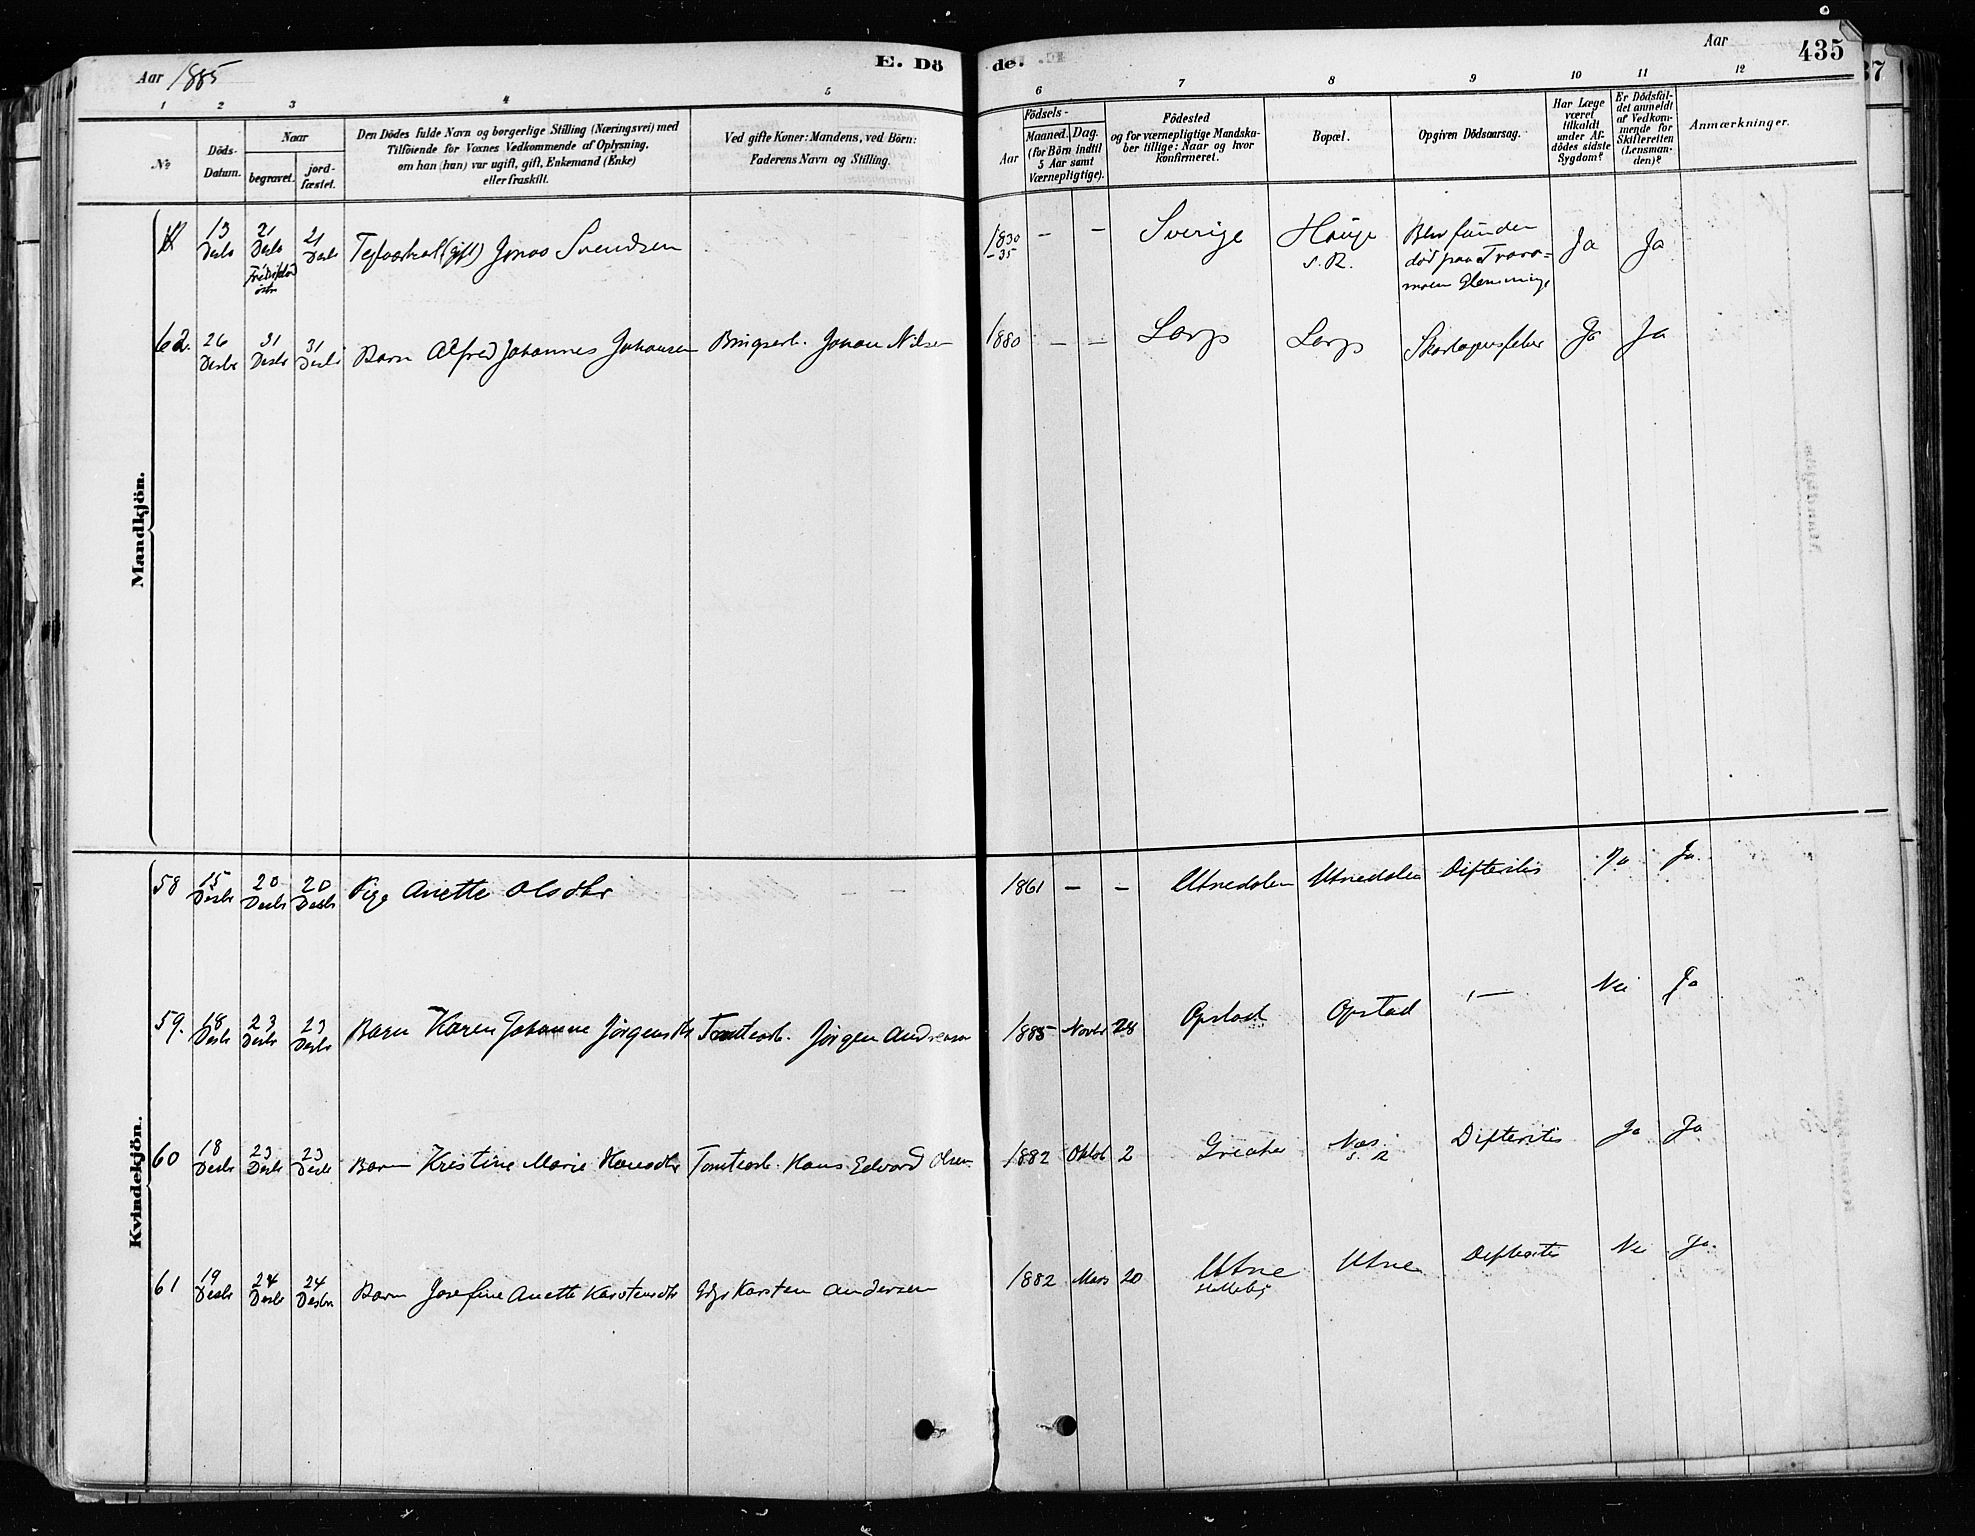 Aar 1885
E. Dö
de.
Aar
435
37
1 2 3 4 5 6 7 8 9 10 11 12
No
Döds-
Datum.
Naar
begravet.
jord-
fæstet.
Den Dödes fulde Navn og borgerlige Stilling (Næringsvei) med
Tilföiende for Voxnes Vedkommende af Oplysning,
om han (hun) var ugift, gift, Enkemand (Enke)
eller fraskilt.
Ved gifte Koner: Mandens, ved Börn:
Faderens Navn og Stilling.
Födsels-
Aar
Maaned. Dag.
(for Börn indtil
5 Aar samt
Værnepligtige).
Födested
og for værnepligtige Mandska-
ber tillige: Naar og hvor
konfirmeret.
Bopæl.
Opgiven Dödsaarsag.
Har Læge
været
tilkaldt
under Af-
dödes sidste
Sygdom?
Er Dödsfal-
det anmeldt
af Vedkom-
mende for
Skifteretten
(Lensman-
den)?
Anmærkninger.
Mandkjön.
13 Desbr 21 Desbr 21 Desbr (gift) Jonas Svendsen 1830 -35 — — Sverige Hauge S.R. Blev funden Ja Ja
død paa
62. 26 Desbr 31 Desbr 31 Desbr Barn Alfred Johannes Johansen Johan Nilsen 1880 — — Lorp Lorp Skarlagensfeber Ja Ja
Kvindekjön.
58 15 Desbr 20 Desbr 20 Desbr Pige Anette Olsdtr — — 1861 — — Utnedalen Utnedalen Difteritis Ja Ja.
59. 18 Desbr 23 Desbr 23 Desbr Barn Karen Johanne Jørgensdtr Tomtearb. Jørgen Andreasen 1885 Novbr 28 Opstad Opstad — Nei Ja
60 18 Desbr 23 Desbr 23 Desbr Barn Kristine Marie Hansdtr Tomtearb. Hans Edvard Olsen 1882 Oktob 2 Greaker Næs S. R Difteritis Ja Ja
61 19 Desbr 24 Desbr 24 Desbr Barn Josefine Anette Karstensdtr Karsten Andersen 1882 Mars 20 Utne Utne Difteritis Nei Ja.